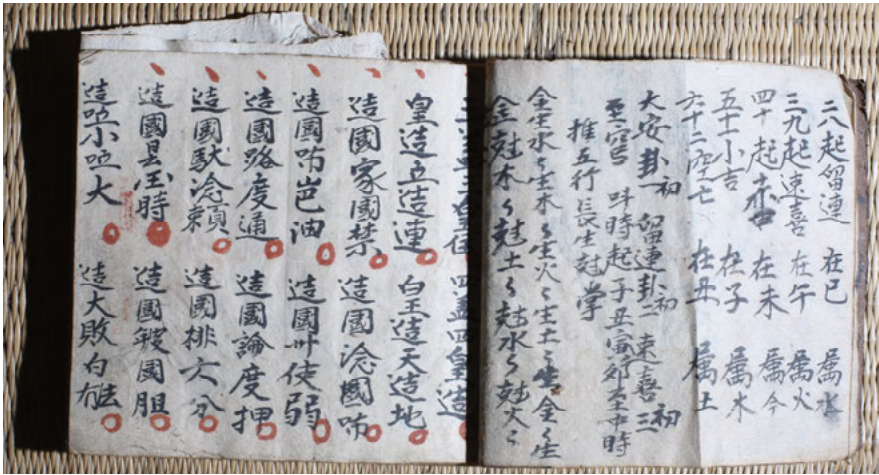 二八起留連 在巳 屬水
三九起速喜 在午 屬火
四十起赤口 在未 屬今
五十一小吉 在子 屬木
六十二空七 在丑 屬土
大安卦一初 留連卦二初 速喜三初
時起子丑寅卯至申時
推五行長生討掌
金生水〻生木〻生火〻生土〻生金〻生
金尅木〻尅土〻尅水〻尅火〻
四皇造
皇造立造連 白王造天造地
造國家國禁 造國淰國咘
造國咘岜油 造國卅使弱
造國路度通 造國論度押
造國馱淰頼 造國排六分
造國县時 造國皱國胆
造小大 造大敗白